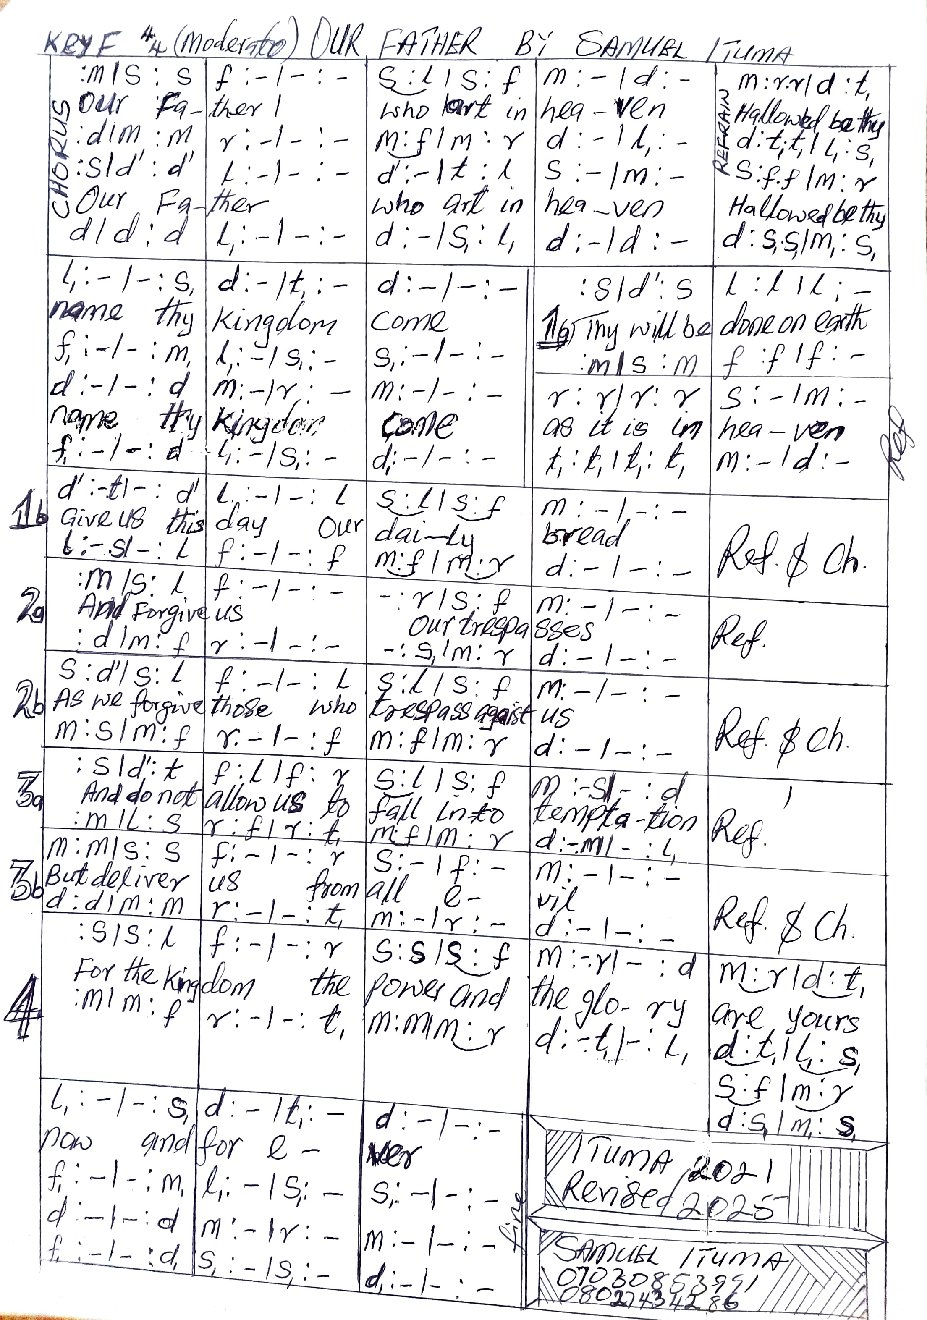 KEY F 4/4 (Moderato) OUR FATHER BY SAMUEL ITUMA
CHORUS
:m/s:s f:-/-:- s:l/s:f m:-/d:-
Our Fa-ther who art in hea-ven
:d/m:m r:-/-:- m:f/m:r d:-/l,:-
:s/d':d' l:-/-:- d':-/t:l s:-/m:-
Our Fa-ther who art in hea-ven
d/d:d l,:-/-:- d:-/s,:l, d:-/d:-
REFRAIN
m:r.r/d:t,
Hallowed be thy
d:t,.t,/l,:s,
s:f.f/m:r
Hallowed be thy
d:s,.s,/m,:s,
l,:-/-:s, d:-/t,:- d:-/-:-
name thy kingdom come
f,:-/-:m, l,:-/s,:- s,:-/-:-
d:-/-:d m:-/r:- m:-/-:-
name thy kingdom come
f,:-/-:d l,:-/s,:- d,:-/-:-
:s/d':s l:l/l:-
1a Thy will be done on earth
:m/s:m f:f/f:-
r:r/r:r s:-/m:-
as it is in hea-ven
t,:t,/t,:t, m:-/d:-
Ref
d':-t/-:d' l:-/-:l s:l/s:f m:-/-:-
1b Give us this day our dai-ly bread
l:-s/-:l f:-/-:f m:f/m:r d:-/-:-
Ref. $ Ch.
:m/s:l f:-/-:- -:r/s:f m:-/-:-
2a And Forgive us Our trespasses
:d/m:f r:-/-:- -:s,/m:r d:-/-:-
Ref.
s:d'/s:l f:-/-:l s:l/s:f m:-/-:-
2b As we forgive those who trespass against us
m:s/m:f r:-/-:f m:f/m:r d:-/-:-
Ref. $ Ch.
:s/d':t f:l/f:r s:l/s:f m:-s/-:d
3a And do not allow us to fall in-to tempta-tion
:m/l:s r:f/r:t, m:f/m:r d:-m/-:l,
Ref.
m:m/s:s f:-/-:r s:-/f:- m:-/-:-
3b But deliver us from all e- vil
d:d/m:m r:-/-:t, m:-/r:- d:-/-:-
Ref. $ Ch.
:s/s:l f:-/-:r s:s/s:f m:-r/-:d m:r/d:t,
4. For the kingdom the power and the glo-ry are yours
:m/m:f r:-/-:t, m:m/m:r d:-t,/-:l, d:t,/l,:s,
s:f/m:r
d:s,/m,:s,
l,:-/-:s, d:-/t,:- d:-/-:-
now and for e- ver
f,:-/-:m, l,:-/s,:- s,:-/-:-
d:-/-:d m:-/r:- m:-/-:-
f,:-/-:d, s,:-/s,:- d,:-/-:-
fine
ITUMA 2021
Revised 2025
SAMUEL ITUMA
07030853991
08027434286